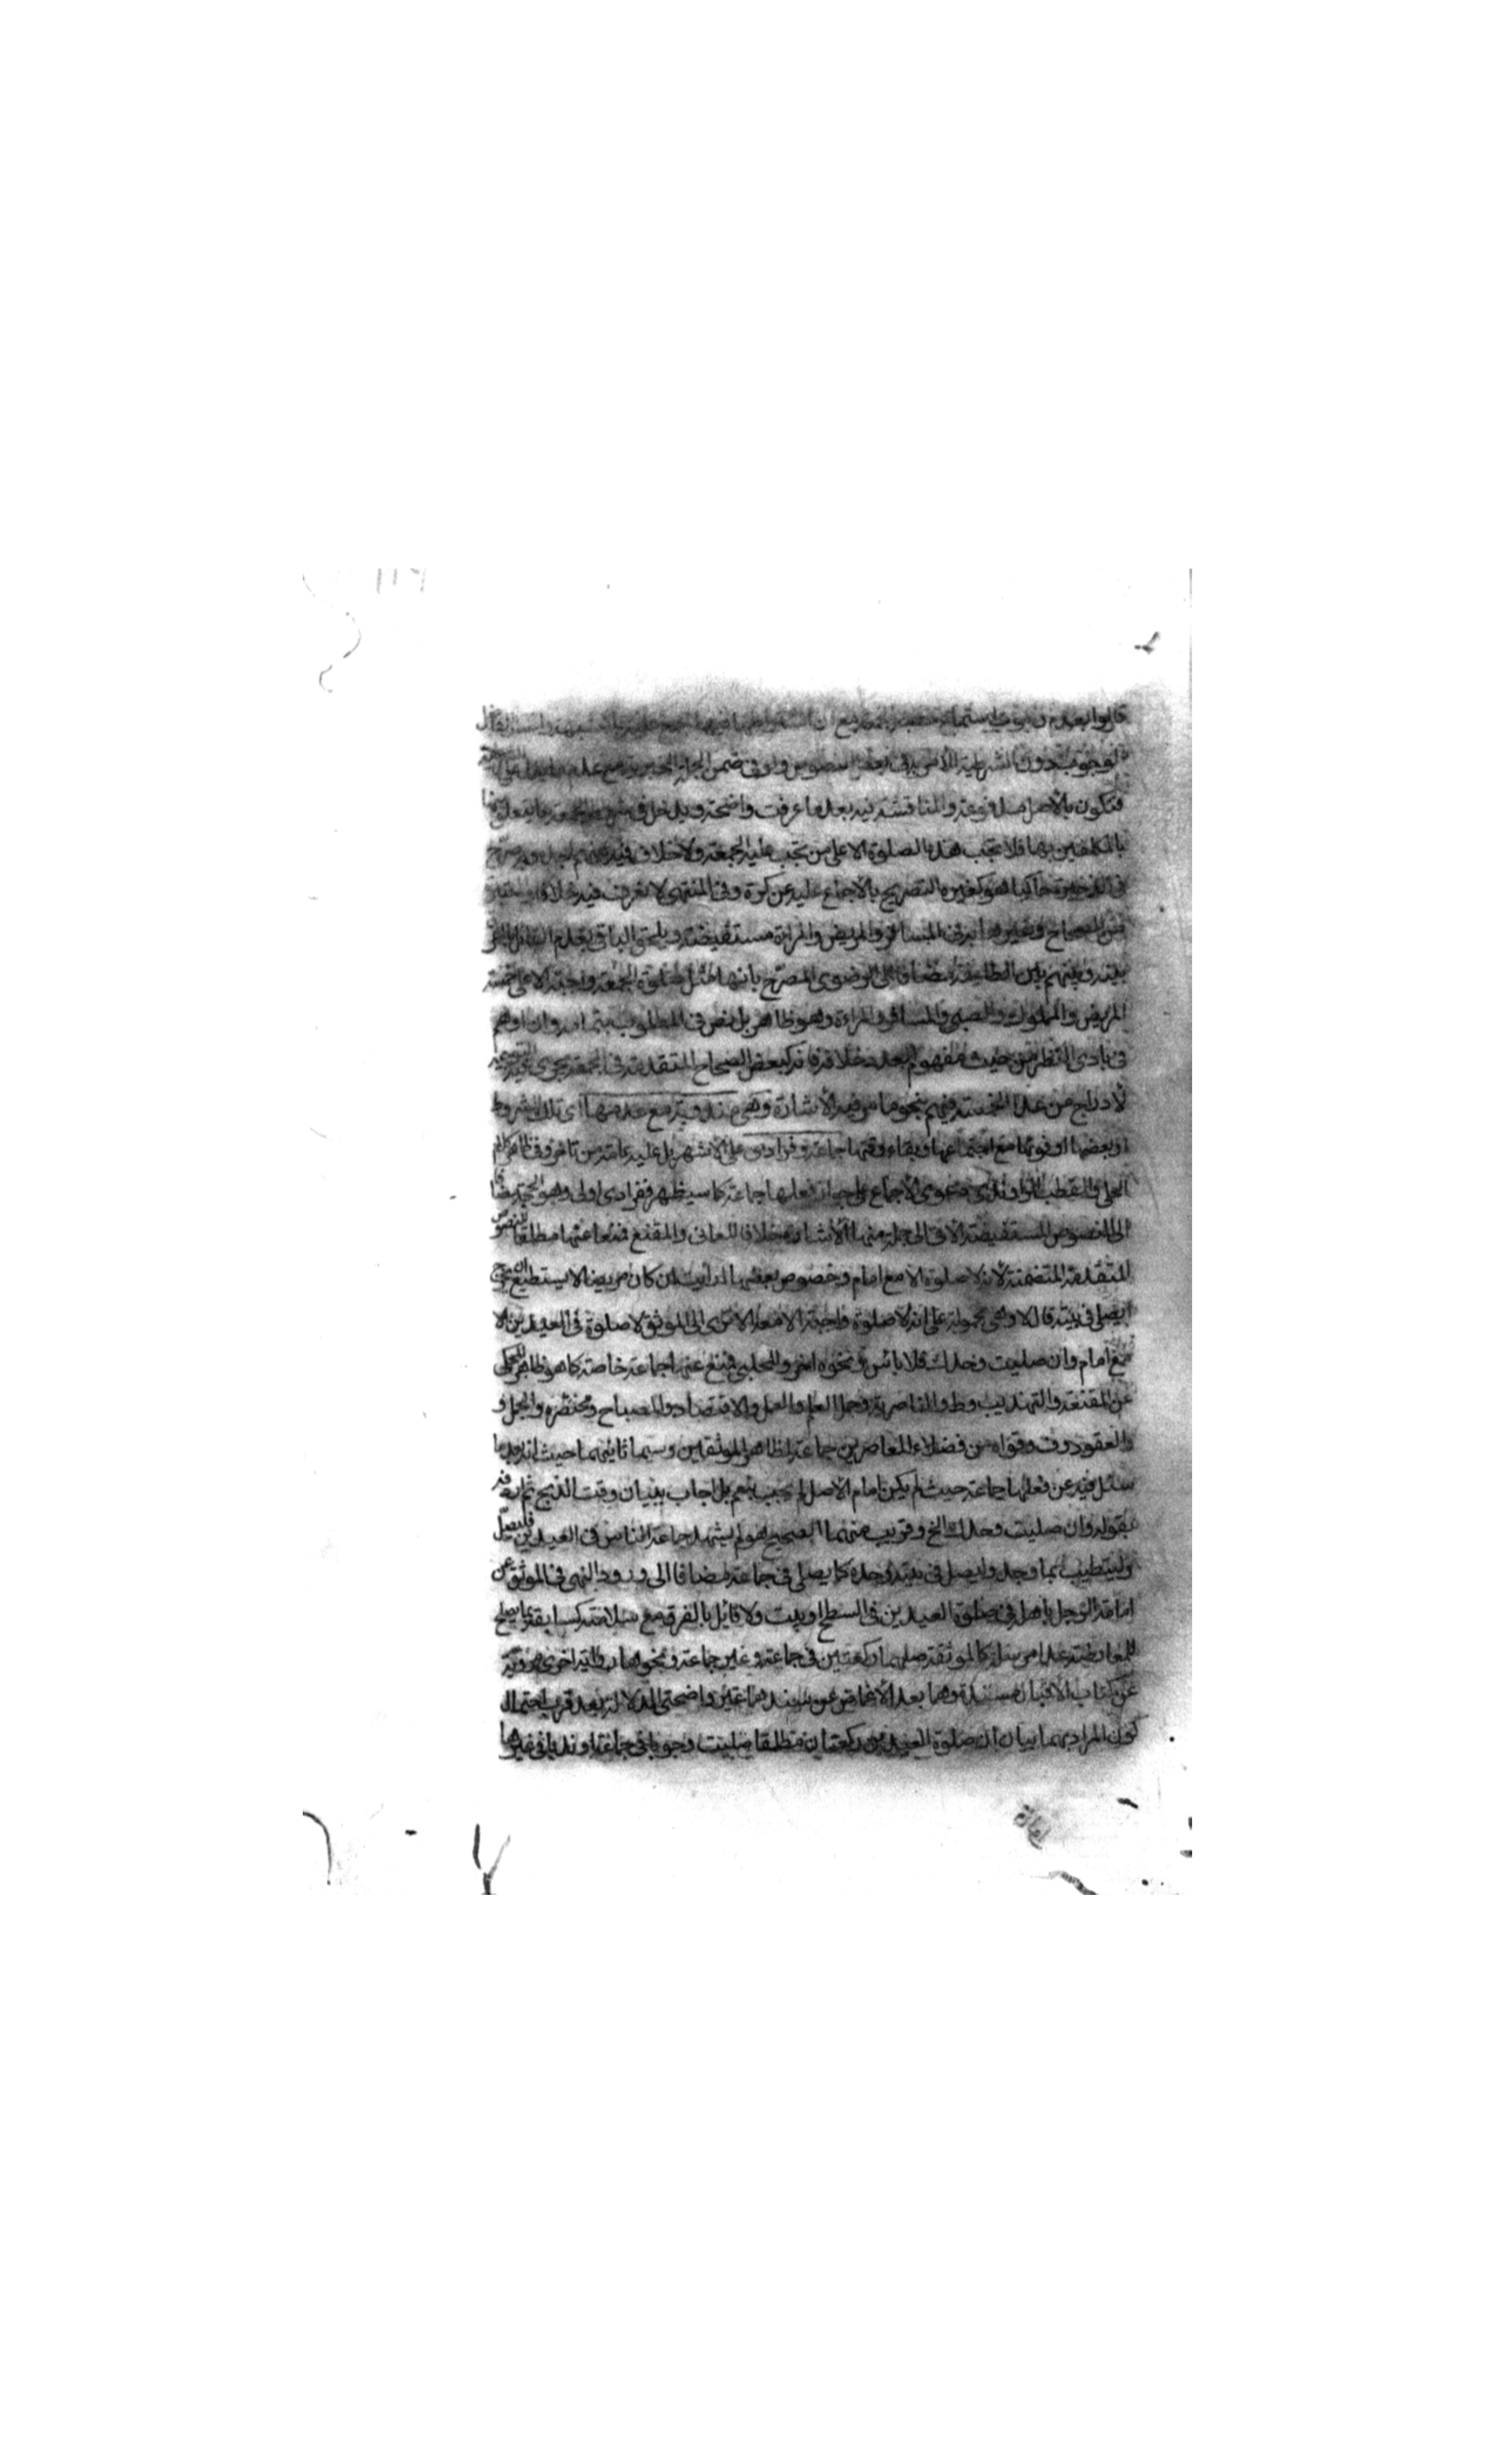 قالوا بعدم وجوب استماع
الوجوب دون الشرعية للأمر به في بعض النصوص ولو في ضمن الجملة الخبرية مع عدم
فتكون بالأصل مدفوعة والمناقشة فيه بعد ما عرفت واضحة ويدخل في الجمعة ما يتعلق منها
بالمكلفين بها فلا تجب هذه الصلوة الا على من تجب عليه الجمعة ولا خلاف فيه
في الذخيرة حاكيا هو كغيره التصريح بالاجماع عليه عن كره وفي المنتهى لا نعرف فيه خلافا
من الصحاح وغيرها به في المسافر والمريض والمراة مستفيضة ويلحق الباقي بعدم القائل بالفرق
بينه وبينهم بين الطايفة مضافا الى الرضوي المصرح بانها مثل صلوة الجمعة واجبة الا على خمسة
المريض والمملوك والصبي والمسافر والمراة وهو ظاهر بل نص في المطلوب بتمامه وان اوهم
في بادي النظر من حيث مفهوم العدد خلافه فانه كبعض الصحاح المتقدمة في الجمعة يجري فيه
لادراج من عدا الخمسة فيهم بنحو ما مر فيه الاشارة وهي مندوبة مع عدمها اي تلك الشروط
او بعضها او فوتها مع اجتماعها وبقاء وقتها جماعة وفرادى على الاشهر بل عليه عامة من تاخر وفي ظاهر كلام
الحلي والقطب الراوندي دعوى الاجماع على جواز فعلها جماعة كما سيظهر ففرادى اولى وهو الحجة مضافا
الى النصوص المستفيضة الاتي الى جملة منها الاشارة خلافا للعماني والمقنع فمنعا عنها مطلقا للنصوص
المتقدمة المتضمنة لانه لا صلوة الا مع امام وخصوص بعضها ارايت ان كان مريضا لا يستطيع ان يخرج
ايصلي في بيته قال لا وهي محمولة على انه لا صلوة واجبة الا معه الا ترى الى الموثق لا صلوة في العيدين الا
مع امام وان صليت وحدك فلا باس ونحوه اخر وللحلبي فمنع عنها جماعة خاصة كما هو ظاهر المحكي
عن المقنعة والتهذيب وط والناصرية وجمل العلم والعمل والاقتصاد والمصباح ومختصره والجمل و
والعقود وف وقواه من فضلاء المعاصرين جماعة لظاهر الموثقين وسيما ثانيهما حيث انه بعد ما
سئل فيه عن فعلها جماعة حيث لم يكن امام الاصل لم يجب بنعم بل اجاب ببيان وقت الذبح ثم
بقوله وان صليت وحدك الخ وقريب منهما الصحيح هو لم يشهد جماعة الناس في العيدين فليصل
وليتطيب بما وجد وليصل في بيته وحده كما يصلي في جماعة مضافا الى ورود النهي في الموثق عن
امامة الرجل باهله في صلوة العيدين في السطح او بيت ولا قائل بالفرق مع سلامته كسابقه عما يصلح
للمعارضة عدا مرسلة كالموثقة صلهما ركعتين في جماعة وغير جماعة ونحوها رواية اخرى مروية
عن كتاب الاقبال مسندة وهما بعد الاغماض عن سندهما غير واضحتي الدلالة بعد قرب احتمال
كون المراد بهما بيان ان صلوة العيدين ركعتان مطلقا صليت وجوبا في جماعة او ندبا في غيرها